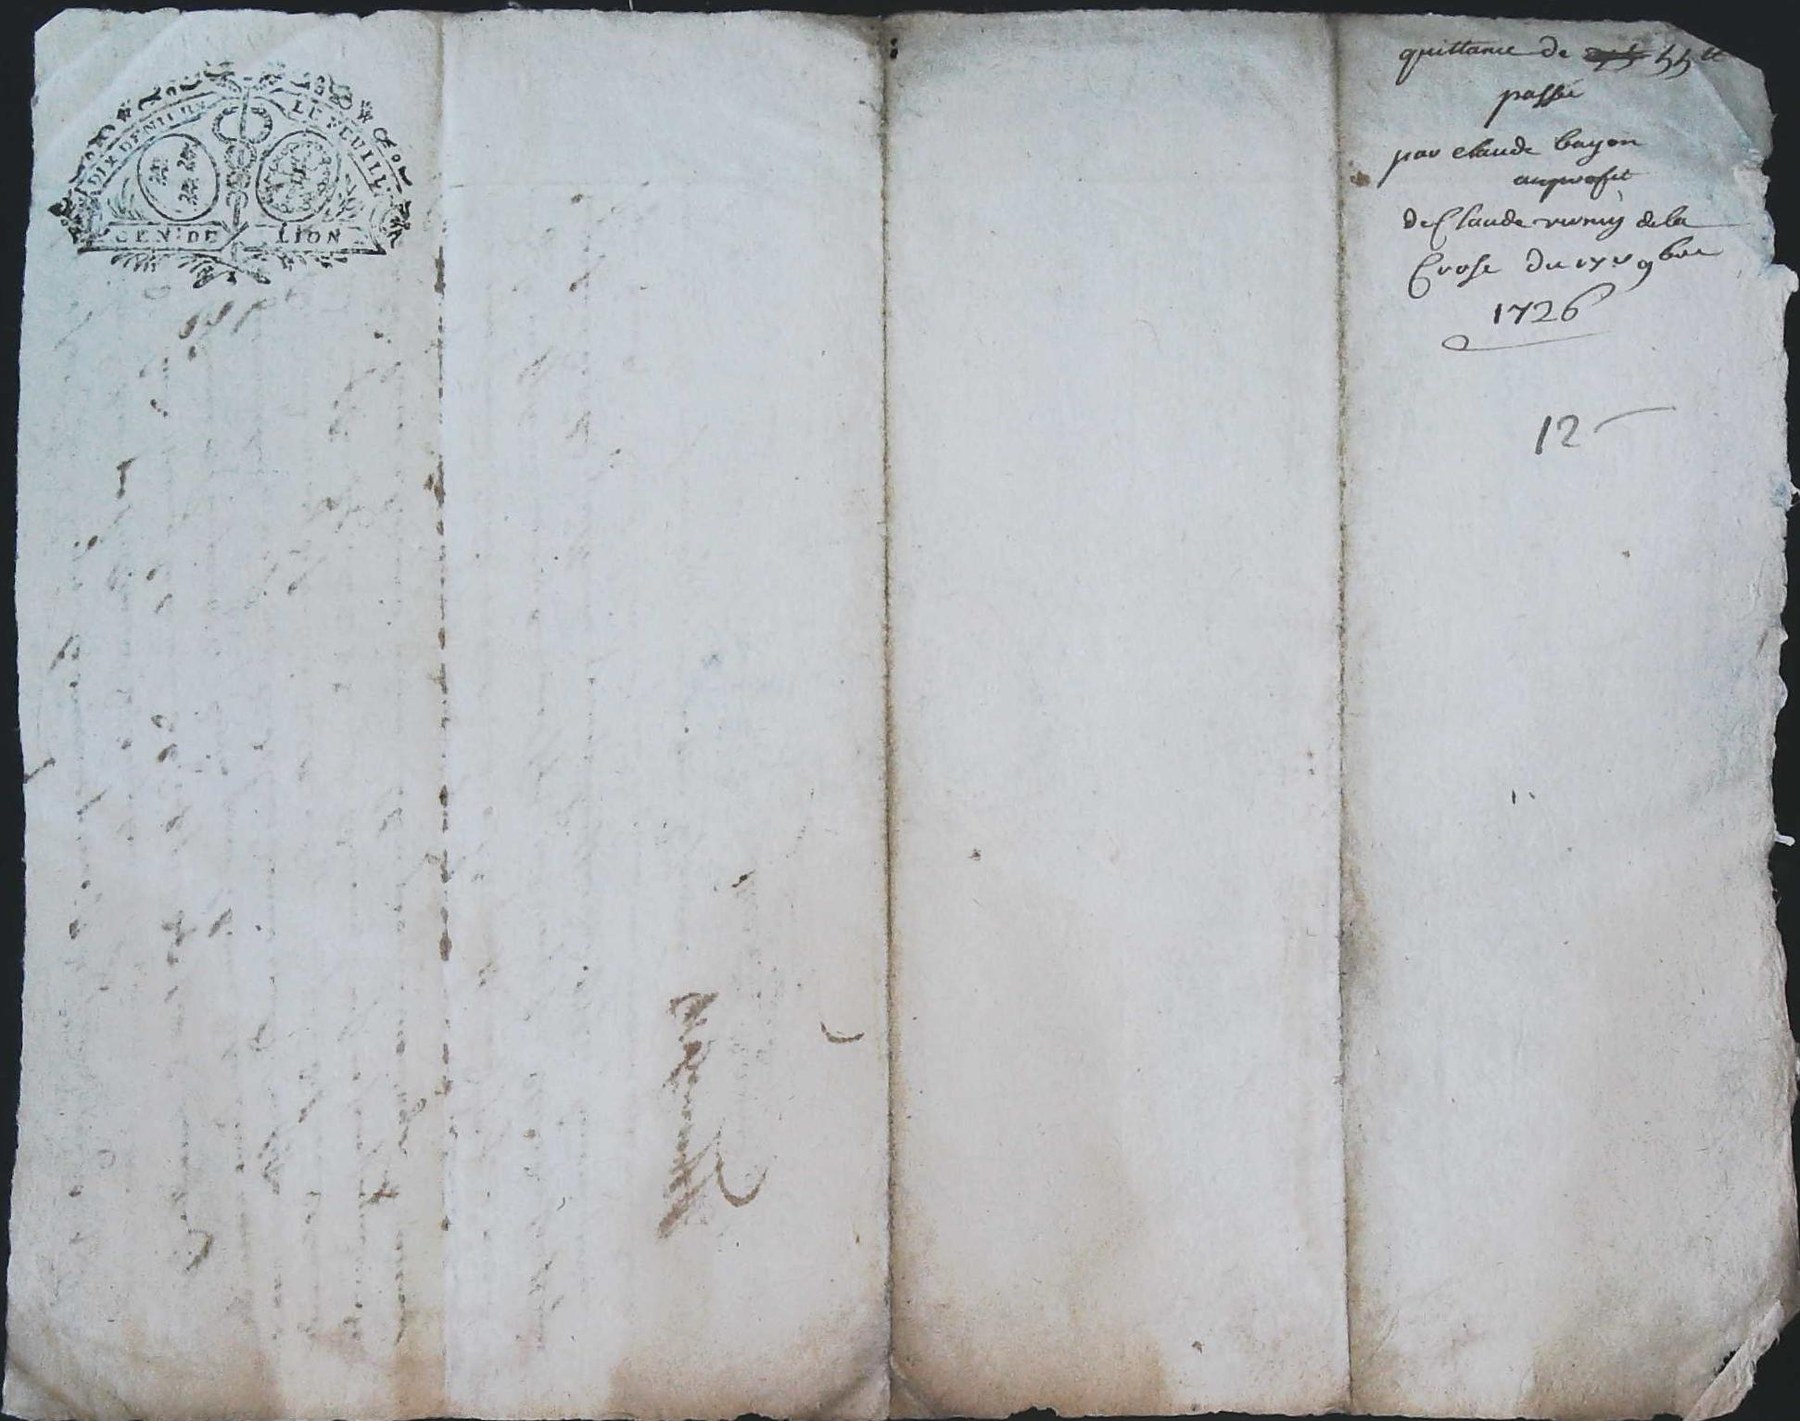 DIX DENIERS LE FEUILL
GEN. DE LION
quittance de 55 tt
passé
par claude bayon
auprofit
de Claude de la
Crose du 17 9bre
1726
12